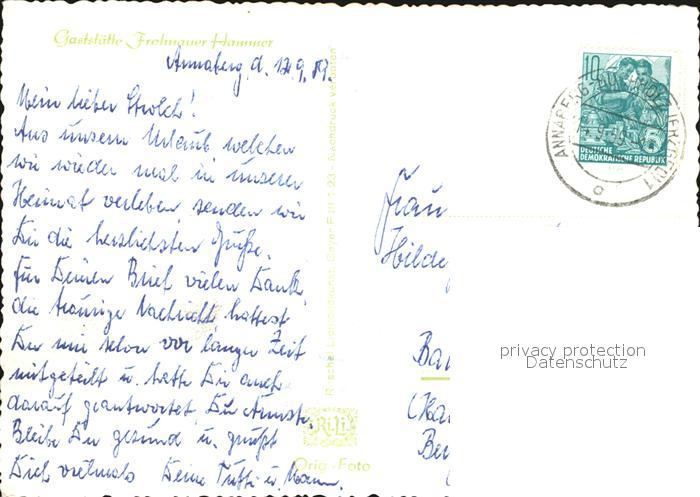 Gaststätte Frohnauer Hammer
Annaberg, d. 12.9.59.
Mein lieber Strolch!
Aus unserm Urlaub welchen
wir wieder mal in unserer
Heimat verleben, senden wir
Dir die herzlichsten Grüße.
Für Deinen Brief vielen Dank,
die traurige Nachricht hattest
Du mir schon vor langer Zeit
mitgeteilt u. hatte Dir auch
darauf geantwortet. Du Ärmste,
Bleibe Du gesund u. grüßt
Dich vielmals Deine Tutti u. Mann.
Nachdruck verboten
Orig.-Foto
10
5
DEUTSCHE
DEMOKRATISCHE REPUBLIK
ANNABERG-BUCHHOLZ
Frau
Hilde
Ba
(Ha
Be
privacy protection
Datenschutz